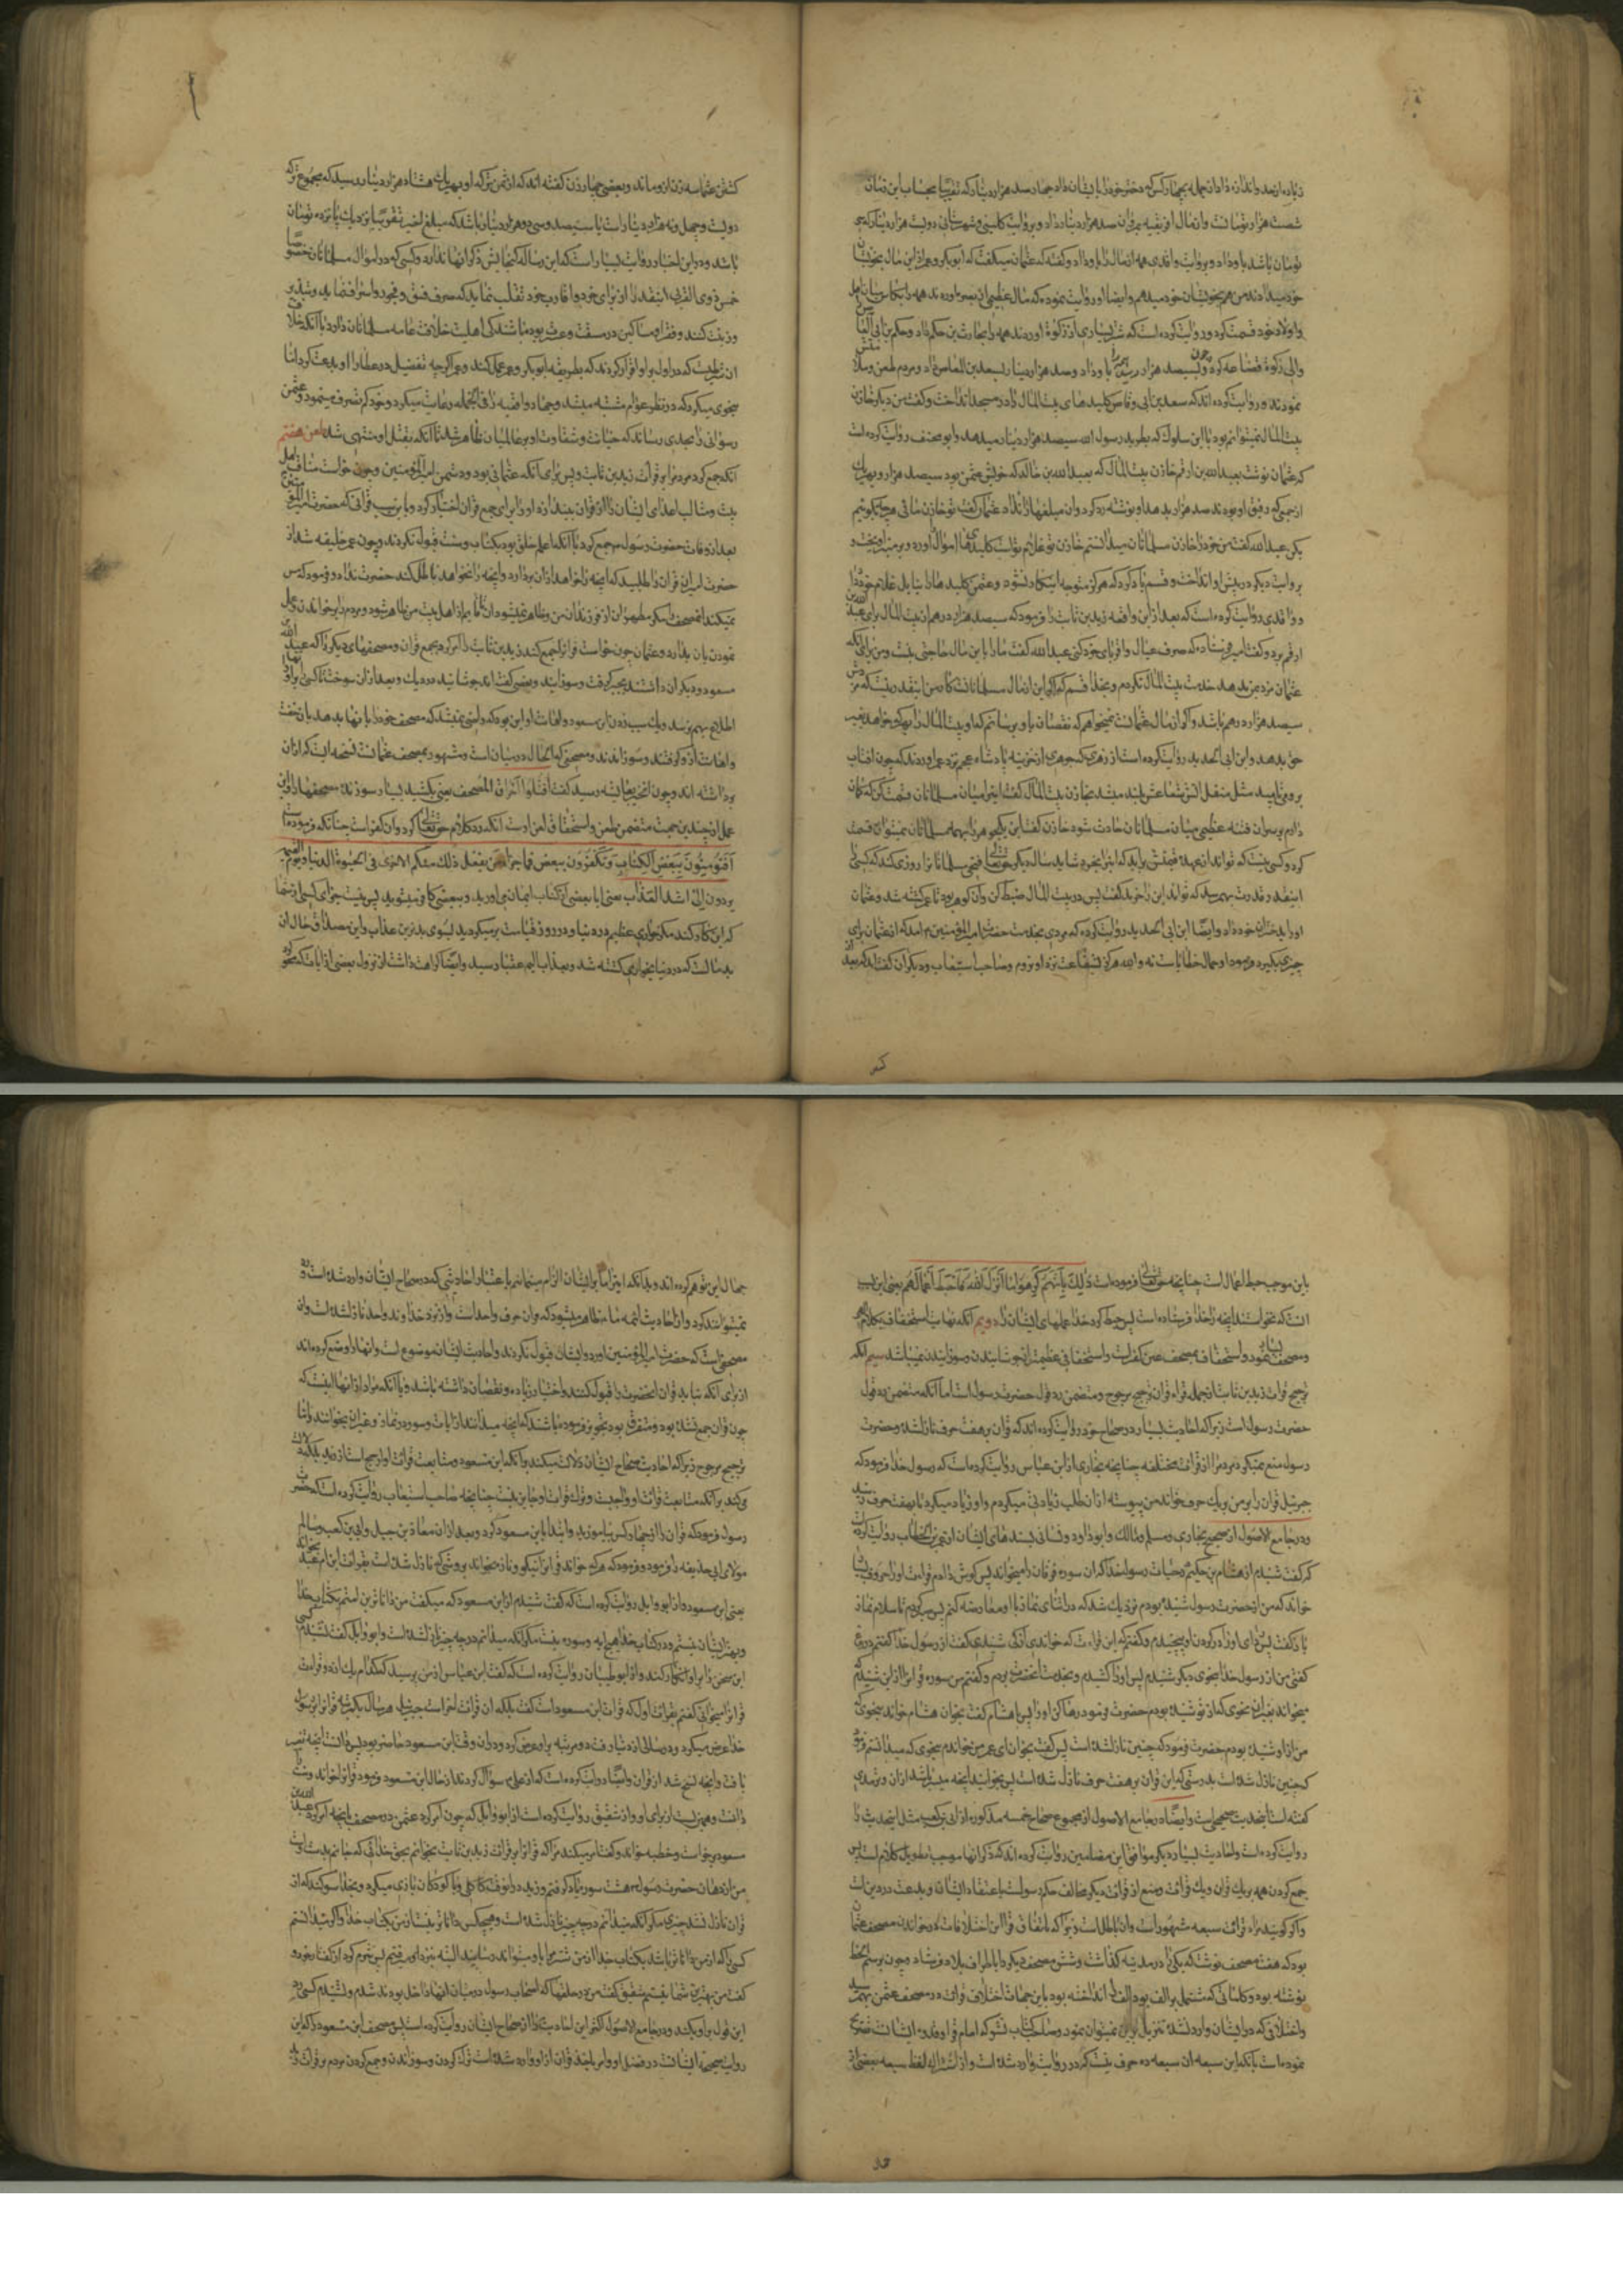 زیاده از حد و اندازه داد از جمله بچهار کس که دختر خود را بایشان داد چهار صد هزار دینار که تقریبا بحساب این زمان
شصت هزار تومانست و از مال افریقیه بمروان صد هزار دینار داد و بروایت کلبی و شهرستانی دویست هزار دینار که
تومان باشد باو داد و بروایت واقدی همه آن مال را باو داد و گفته که عثمان میگفت که ابوبکر و عمر ازین مال بخویشان
خود میدادند من هم بخویشان خود میدهم و ایضا او روایت نموده که مال عظیمی از بصره آوردند همه را
و اولاد خود قسمت کرد و روایت کرده است که شتر بسیاری از زکوة آوردند همه را بحارث بن حکم داد و حکم بن ابی العاص را
والی زکوة قضاعه کرد و چون بسیصد هزار رسید باو داد و صد هزار دینار بسعید بن العاص داد و مردم طعن و ملامتش
نمودند و روایت کرده اند که سعد بن ابی وقاص کلیدهای بیت المال را در مسجد انداخت و گفت من دیگر خازن
بیت المال نمیتوانم بود با این سلوک که بطرید رسول الله سیصد هزار دینار میدهد و ابو مخنف روایت کرده است
که عثمان نوشت بعبد الله بن ارقم خازن بیت المال که بعبد الله بن خالد که خویش عثمن بود سیصد هزار و بهر یک
از جمعی که رفیق او بودند صد هزار بدهد او نوشته رد کرد و آن مبلغها را نداد عثمان گفت تو خازن مائی هر چه بگوئیم
بکن عبد الله گفت من خود را خازن مسلمانان میدانستم خازن تو غلام تواست کلیدهای بیت المال آورد و بر منبر آویخت و
بروایت دیگر در پیش او انداخت و قسم یاد کرد که هرگز متوجه اینکار نشود و عثمن کلیدها را بنایل غلام خود داد
و واقدی روایت کرده است که بعد از این واقعه زید بن ثابت را فرمود که سیصد هزار درهم از بیت المال برای عبد الله بن
ارقم برد و گفت امیر فرستاده که صرف عیال و اقربای خود کنی عبد الله گفت مرا باین مال حاجتی نیست و من برای آنکه
عثمان مزد من بدهد خدمت بیت المال نکردم و بخدا قسم که اگر این از مال مسلمانانست کار من اینقدر نیست که مزدش
سیصد هزار درهم باشد و اگر از مال عثمانست نمیخواهم که نقصان باو برسانم که او بیت المال را بهر که خواهد بغیر
حق بدهد و ابن ابی الحدید روایت کرده است از زهری که جوهری از خزینه پادشاه عجم نزد عمر آوردند که چون آفتاب
بر و می‌تابید مثل منقل آتش شعاعش بلند میشد بخازن بیت المال گفت این را میان مسلمانان قسمت کن که گمان
دارم بر سر آن فتنه عظیمی میان مسلمانان حادث شود خازن گفت این یک گوهر را بهمه مسلمانان نمیتوان قسمت
کرد و کسی نیست که تواند از عهده قیمتش برآید که اینرا بخرد شاید سال دیگر حق تعالی فتحی مسلمانان را روزی کند که کسی را
اینقدر قدرت بهم رسد که تواند این را خرید گفت پس در بیت المال ضبط کن و آن گوهر بود تا عمر کشته شد و عثمان
او را بدختران خود داد و ایضا ابن ابی الحدید روایت کرده که مردی بخدمت حضرت امیر المؤمنین م آمد که از عثمان برای او
چیزی بگیرد فرمود او حمال خطایاست نه والله هرگز بشفاعت نزد او نروم و صاحب استیعاب و دیگران گفته اند که بعد از
کشتن عثمان سه زن ازو ماند و بعضی چهار زن گفته اند که از ثمن ترکه او بهر یک هشتاد هزار دینار رسید که مجموع ترکه
باشد و در این اخبار روایت بسیار است که این رساله گنجایش ذکر آنها ندارد و کسی که در اموال مسلمانان خصوصا
خمس ذوی القربی اینقدر را از برای خود و اقارب خود تقلب نماید که صرف فسق و فجور و اسراف نماید و تبذیر
و زینت کنند و فقرا و مساکین در مسغبت و عسرت بوده باشند کی اهلیت خلافت عامه مسلمانان دارد با آنکه خلاف
آن شرطیست که در اول بر او اقرار کردند که بطریقه ابوبکر و عمر عمل کند و عمر اگر چه تفضیل در عطا را او بدعت کرد اما
بنحوی میکرد که در نظر عوام مشتبه میشد و جهاد و اقسه را فی الجمله رعایت میکرد و خود کم تصرف مینمود و عثمن
رسوائی را بجدی رساند که خیانت و شقاوت او بر عالمیان ظاهر شد تا آنکه بقتل او منتهی شد طعن هفتم
آنکه جمع کرد مردم را بر قرائت زید بن ثابت و پس برای آنکه عثمانی بود و دشمن امیر المؤمنین و چون خواست مناقب اهل
بیت و مثالب اعدای ایشان را از قرآن بیندازد او را برای جمع قرآن اختیار کرد و باین سبب قرآنی که حضرت امیر المؤمنین
بعد از وفات حضرت رسول م جمع کرد با آنکه اعلم خلق بود بکتاب و سنت قبول نکردند و چون عمر خلیفه شد از
حضرت امیر آن قرآن را طلبید که آنچه را خواهد از آن بردارد و آنچه را نخواهد باطل کند حضرت نداد و فرمود که مس
نمیکند آن مصحف را مگر مطهرون از فرزندان من و ظاهر نمیشود آن تا قایم از اهل بیت من ظاهر شود و مردم را بر خواندن و عمل
نمودن بآن بدارد و عثمان چون خواست قرآن را جمع کند زید بن ثابت را امر کرد بجمع قرآن و مصحفهای دیگر را که عبد الله بن
مسعود و دیگران داشتند بجبر گرفت و سوزانید و بعضی گفته اند جوشانید در دیگ و بعد از آن سوخت تا کسی بر آنها
اطلاع بهم نرسد و یک سبب زدن ابن مسعود و اهانت او این بود که راضی نمیشد که مصحف خود را بآنها بدهد بآن خفت
و اهانت از او گرفتند و سوزاندند و مصحفی که الحال در میان است و مشهور بمصحف عثمانست نسخه ایست که از آن
برداشته اند و چون این خبر بعایشه رسید گفت اقتلوا حراق المصحف یعنی بکشید بسیار سوزنده مصحفها را و این
عمل از چندین جهت متضمن طعن و استحقاق لعن اوست آنکه رد کلام حق تعالی کرد و آن کفر است چنانکه فرموده است
أفتؤمنون ببعض الکتاب وتکفرون ببعض فما جزاء من یفعل ذلک منکم الا خزی فی الحیوة الدنیا ویوم القیمة
یردون إلی اشد العذاب یعنی آیا ببعضی از کتاب ایمان می‌آورید و ببعضی کافر میشوید پس نیست جزای کسی از شما
که این کار کند مگر خواری عظیم در دنیا و در روز قیامت برمیگردید بسوی بدترین عذاب و این مصداق حال آن
بدمآلست که در دنیا بخواری کشته شد و بعذاب الیم عقبا رسید و ایضا کراهت داشت از نزول بعضی از آیات که
باین موجب حبط اعمال است چنانچه حق تعالی فرموده است ذلک بأنهم کرهوا ما انزل الله فاحبط أعمالهم یعنی این بسبب
آنست که نخواستند آنچه را خدا فرستاده است پس حبط کرد خدا عملهای ایشان را دویم آنکه نهایت استخفاف بکلام الهی
و مصحف ایشان نمود و استخفاف مصحف عین کفر است و استخفافی عظیمتر از جوشانیدن و سوزانیدن نمیباشد سیم آنکه
ترجیح قرائت زید بن ثابت از جمله قراء قرآن ترجیح مرجوح و متضمن رد قول حضرت رسول است اما آنکه متضمن رد قول
حضرت رسول است زیرا که احادیث بسیار در صحاح خود روایت کرده اند که قرآن بر هفت حرف نازل شده و حضرت
رسول منع نمیکرد مردم را از قرائت مختلفه چنانچه بخاری از ابن عباس روایت کرده است که رسول خدا فرمود که
جبرئیل قرآن را بر من بر یک حرف خواند من پیوسته از آن طلب زیادتی میکردم و او زیاد میکرد تا بهفت حرف رسید
و در جامع الاصول از صحیح بخاری و مسلم و مالک و ابو داود و نسائی بسندهای ایشان از عمر بن الخطاب روایت کرده است
که گفت شنیدم از هشام بن حکیم در حیات رسول خدا که آن سوره فرقان را میخواند پس گوش دادم قراءت او را حروف بسیار
خواند که من از حضرت رسول نشنیده بودم نزدیک شد که در اثنای نماز با او معارضه کنم پس صبر کردم تا سلام نماز
کفتی من از رسول خدا بنحوی دیگر شنیدم پس او را کشیدم و بخدمت آنحضرت بردم و گفتم من سوره فرقان را از این شنیدم که
میخواند بغیر آن نحوی که از تو شنیده بودم حضرت فرمود رها کن او را پس هشام گفت بخوان هشام خواند بنحوی که
من از او شنیده بودم حضرت فرمود که چنین نازل شده است پس گفت بخوان ای عمر من خواندم بنحوی که میدانستم فرمود
که چنین نازل شده است بدرستی که این قرآن بر هفت حرف نازل شده است پس بخوانید آنچه میسر باشد از آن و ترمذی
گفته است این حدیث صحیحیست و ایضا در جامع الاصول از مجموع صحاح خمسه مذکوره از ابی بن کعب مثل این حدیث را
روایت کرده است و احادیث بسیار دیگر موافق این مضامین روایت کرده اند که ذکر آنها موجب تطویل کلام است پس
جمع کردن همه بر یک قرآن و یک قرائت و منع از قرائت دیگر مخالف حکم رسولست باعتقاد ایشان و بدعت در دین است
و اگر گویند مراد قرائت سبعه مشهور است و آن باطل است زیرا که باتفاق قرا این اختلافات در خواندن مصحف عثمان
بود که هفت مصحف نوشت که یکی را در مدینه گذاشت و شش مصحف دیگر را باطراف بلاد فرستاد و چون برسم الخط
نوشته بود و کلماتی که مشتمل بر الف بود الف را انداخته بود باین جهات اختلاف قرائت در مصحف عثمن بهم رسید
نموده است بآنکه این سبعه آن سبعه ده حرف نیست که در روایت وارد شده است و از اشتراک لفظ سبعه بعضی از
جهال این توهم کرده اند و بدانکه اینرا ما بر ایشان الزام مینمائیم باعتبار احادیثی که در صحاح ایشان وارد شده است و رد
نمیتوانند کرد و از احادیث ائمه ما م ظاهر میشود که قرآن حرف واحد است و از نزد خداوند واحد نازل شده است و آن
مصحفی است که حضرت امیر المؤمنین آورد و ایشان قبول نکردند و احادیث ایشان موضوع است و آنها را وضع کرده اند
از برای آنکه نباید قرآن آنحضرت را قبول کنند و اختیار زیاده و نقصان داشته باشند و یا آنکه مراد از آنها اینست که
چون قرآن جمع نشده بود و متفرق بود تجویز فرموده باشد که آنچه میدانند از آیات و سور در نماز و غیر آن بخوانند و اما
ترجیح مرجوح زیرا که احادیث صحاح ایشان دلالت میکند بر آنکه ابن مسعود و متابعت قرائت او ارجح است از زید بلکه دلالت
میکند بر آنکه متابعت قرائت او واجبست و ترک قرائت او جایز نیست چنانچه صاحب استیعاب روایت کرده است که حضرت
رسول فرمود که قرآن را از چهار کس بیاموزید و ابتدا بابن مسعود کرد و بعد از آن معاذ بن جبل و ابی بن کعب و سالم
مولای ابی حذیفه را فرمود و فرمود که هر که خواند قرآن را نیکو و تازه بخواند بروشی که نازل شده است بقرائت ابن ام عبد بخواند
یعنی ابن مسعود و از ابو وایل روایت کرده است که گفت شنیدم از ابن مسعود که میگفت من داناترین امتم بکتاب خدا
و بهتر ایشان نیستم و در کتاب خدا هیچ آیه و سوره نیست مگر آنکه میدانم در چه چیز نازل شده است و ابو وایل گفت نشنیدم کسی
این سخن را بر او انکار کند و از ابو ظبیان روایت کرده است که گفت ابن عباس از من پرسید که کدام یک از دو قراءت
قرآن را میخوانی گفتم بقرائت اول که قرائت ابن مسعود است گفت بلکه آن قرائت آخر است جبرئیل هر سال یکمرتبه قرآن را بر رسول
خدا عرض میکرد و در سالی از دنیا رفت دو مرتبه بر او عرض کرد و در آن وقت ابن مسعود حاضر بود پس دانست آنچه تغییر
یافت و آنچه نسخ شد از قرآن و ایضا روایت کرده است که از علی م سؤال کردند از حال ابن مسعود فرمود قرآن را خواند و سنت را
دانست و همین بس است از برای او و از شقیق روایت کرده است از ابو وایل که چون امر کرد عثمن در مصحف بآنچه امر کرد عبد الله بن
مسعود برخواست و خطبه خواند و گفت امر میکند مرا که قرآن را بر قرائت زید بن ثابت بخوانم بحق خدائی که جانم بدست اوست
من از دهان حضرت رسول م هفتاد سوره یاد گرفتم و زید در آنوقت کاکلی داشت و با کودکان بازی میکرد و بخدا سوگند که از
قرآن نازل نشد چیزی مگر آنکه میدانم در چه چیز نازل شده است و هیچکس داناتر نیست از من بکتاب خدا و اگر میدانستم
کسی را که از من داناتر باشد بکتاب خدا و از من شتر مرا باو میتواند رسانید البته بنزد او میرفتم پس شرم کرد از گفتار خود و
گفت من بهترین شما نیستم شقیق گفت من در حلقها که اصحاب رسول در میان آنها داخل بودند شدم و نشنیدم کسی رد
این قول بر او بکند و در جامع الاصول اکثر این احادیث را از صحاح ایشان روایت کرده است پس مصحف ابن مسعود را که این
روایت صحیحه ایشانست در فضل او و امر باخذ قرآن از او وارد شده است ترک کردن و سوزاندن و جمع کردن مردم بر قرائت